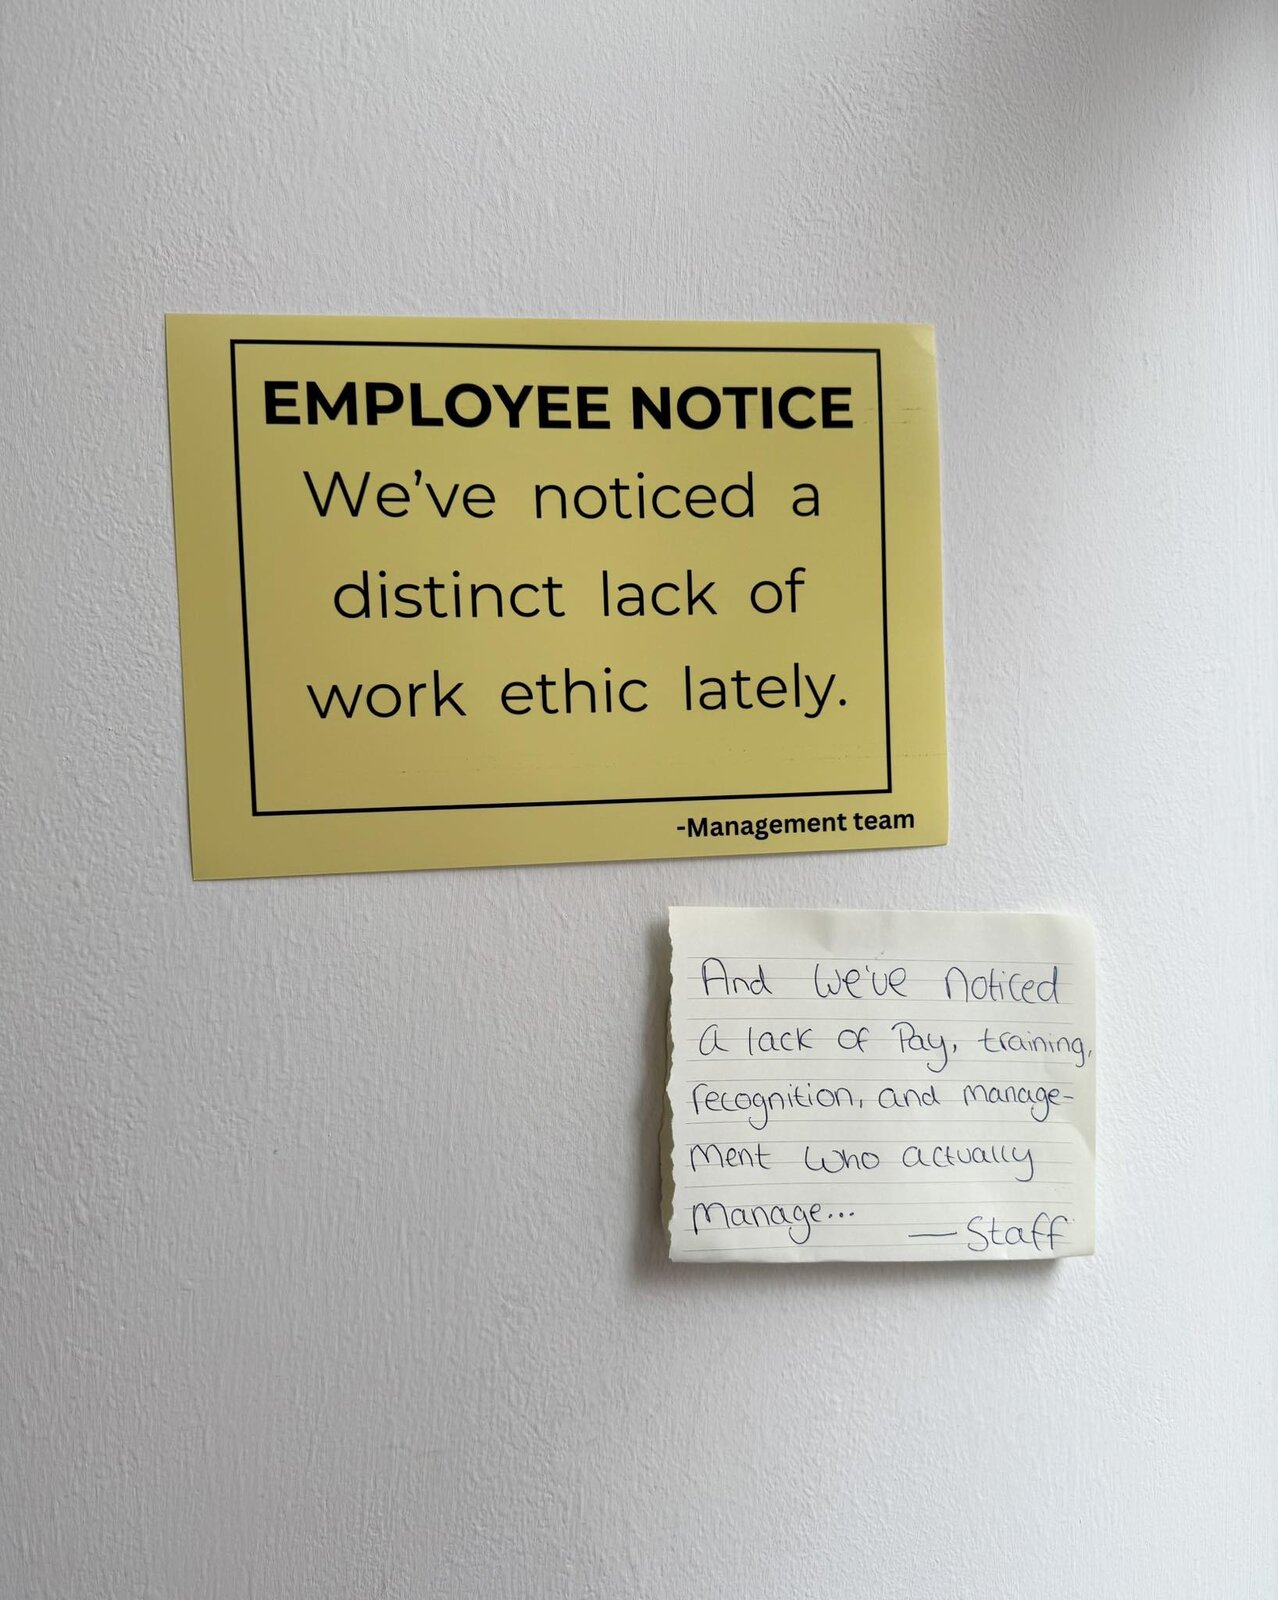 EMPLOYEE NOTICE
We've noticed a
distinct lack of
work ethic lately.
-Management team
And we've noticed
a lack of Pay, training,
recognition, and manage-
ment who actually
manage...
— Staff